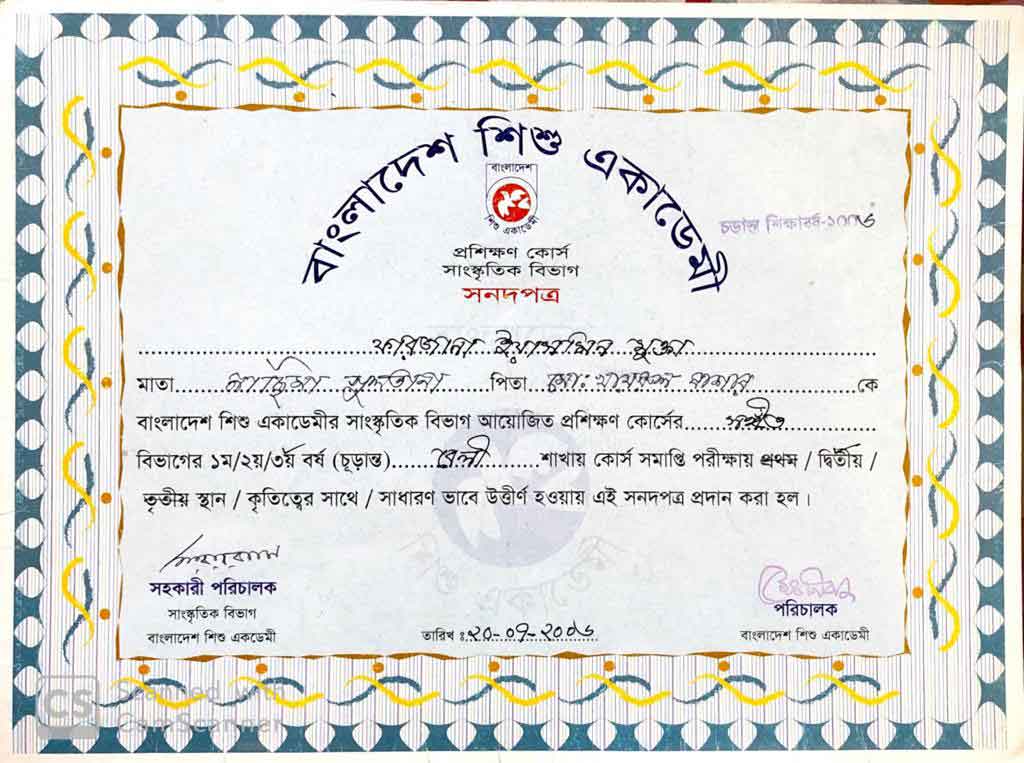 বাংলাদেশ শিশু একাডেমী
বাংলাদেশ
শিশু একাডেমী
চূড়ান্ত শিক্ষাবর্ষ-২০০৬
প্রশিক্ষণ কোর্স
সাংস্কৃতিক বিভাগ
সনদপত্র
ফারজানা ইয়াসমিন মুক্তা
মাতা সুলতানা পিতা মোঃ কে
বাংলাদেশ শিশু একাডেমীর সাংস্কৃতিক বিভাগ আয়োজিত প্রশিক্ষণ কোর্সের সংগীত
বিভাগের ১ম/২য়/৩য় বর্ষ (চূড়ান্ত) বেলী শাখায় কোর্স সমাপ্তি পরীক্ষায় প্রথম / দ্বিতীয় /
তৃতীয় স্থান / কৃতিত্বের সাথে / সাধারণ ভাবে উত্তীর্ণ হওয়ায় এই সনদপত্র প্রদান করা হল।
সহকারী পরিচালক
সাংস্কৃতিক বিভাগ
বাংলাদেশ শিশু একডেমী
তারিখ ঃ ২০-০৭-২০০৬
পরিচালক
বাংলাদেশ শিশু একাডেমী
CS Scanned with
CamScanner